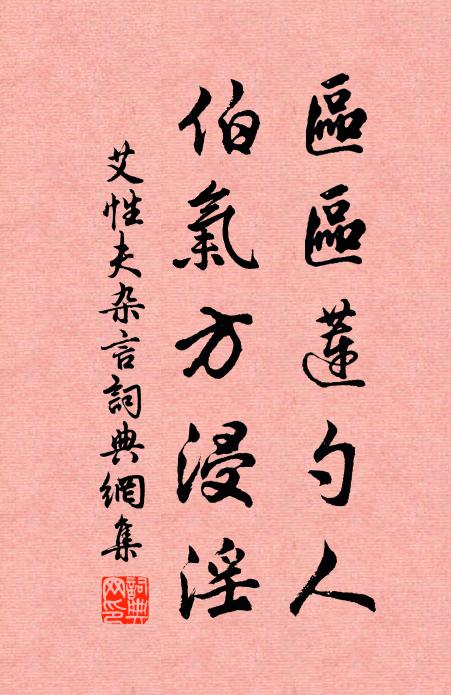 區區蓮勺人
伯氣方浸淫
艾性夫杂言詞典網集
詞典網印